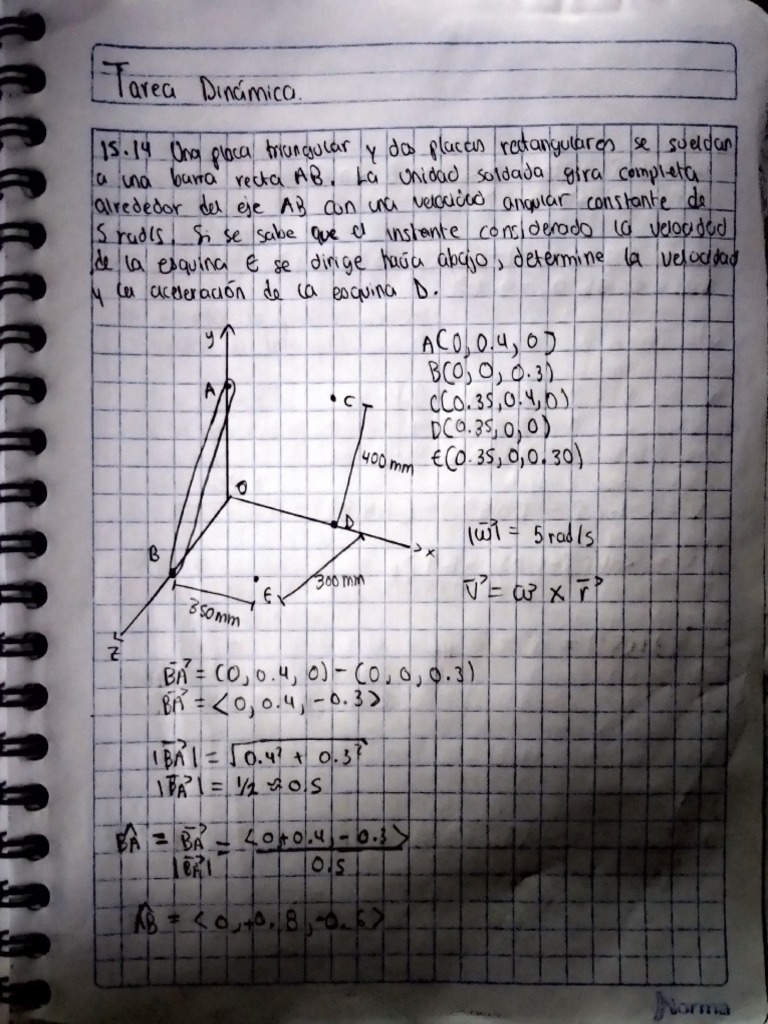 Tarea Dinámica.
15.14 Una placa triangular y dos placas rectangulares se sueldan
a una barra recta AB. La unidad soldada gira completa
alrededor del eje AB con una velocidad angular constante de
5 rad/s. Si se sabe que el instante considerado la velocidad
de la esquina E se dirige hacia abajo, determine la velocidad
y la aceleración de la esquina D.
y
A
C
400mm
O
D
x
B
E
300mm
350mm
z
A(0, 0.4, 0)
B(0, 0, 0.3)
C(0.35, 0.4, 0)
D(0.35, 0, 0)
E(0.35, 0, 0.30)
|ω⃗| = 5 rad/s
V⃗ = ω⃗ x r⃗
BA⃗ = (0, 0.4, 0) - (0, 0, 0.3)
BA⃗ = <0, 0.4, -0.3>
|BA⃗| = √0.4² + 0.3²
|BA⃗| = 1/2 ≈ 0.5
BÂ = BA⃗/|BA⃗| = <0, +0.4, -0.3>/0.5
AB̂ = <0, +0.8, -0.6>
Norma